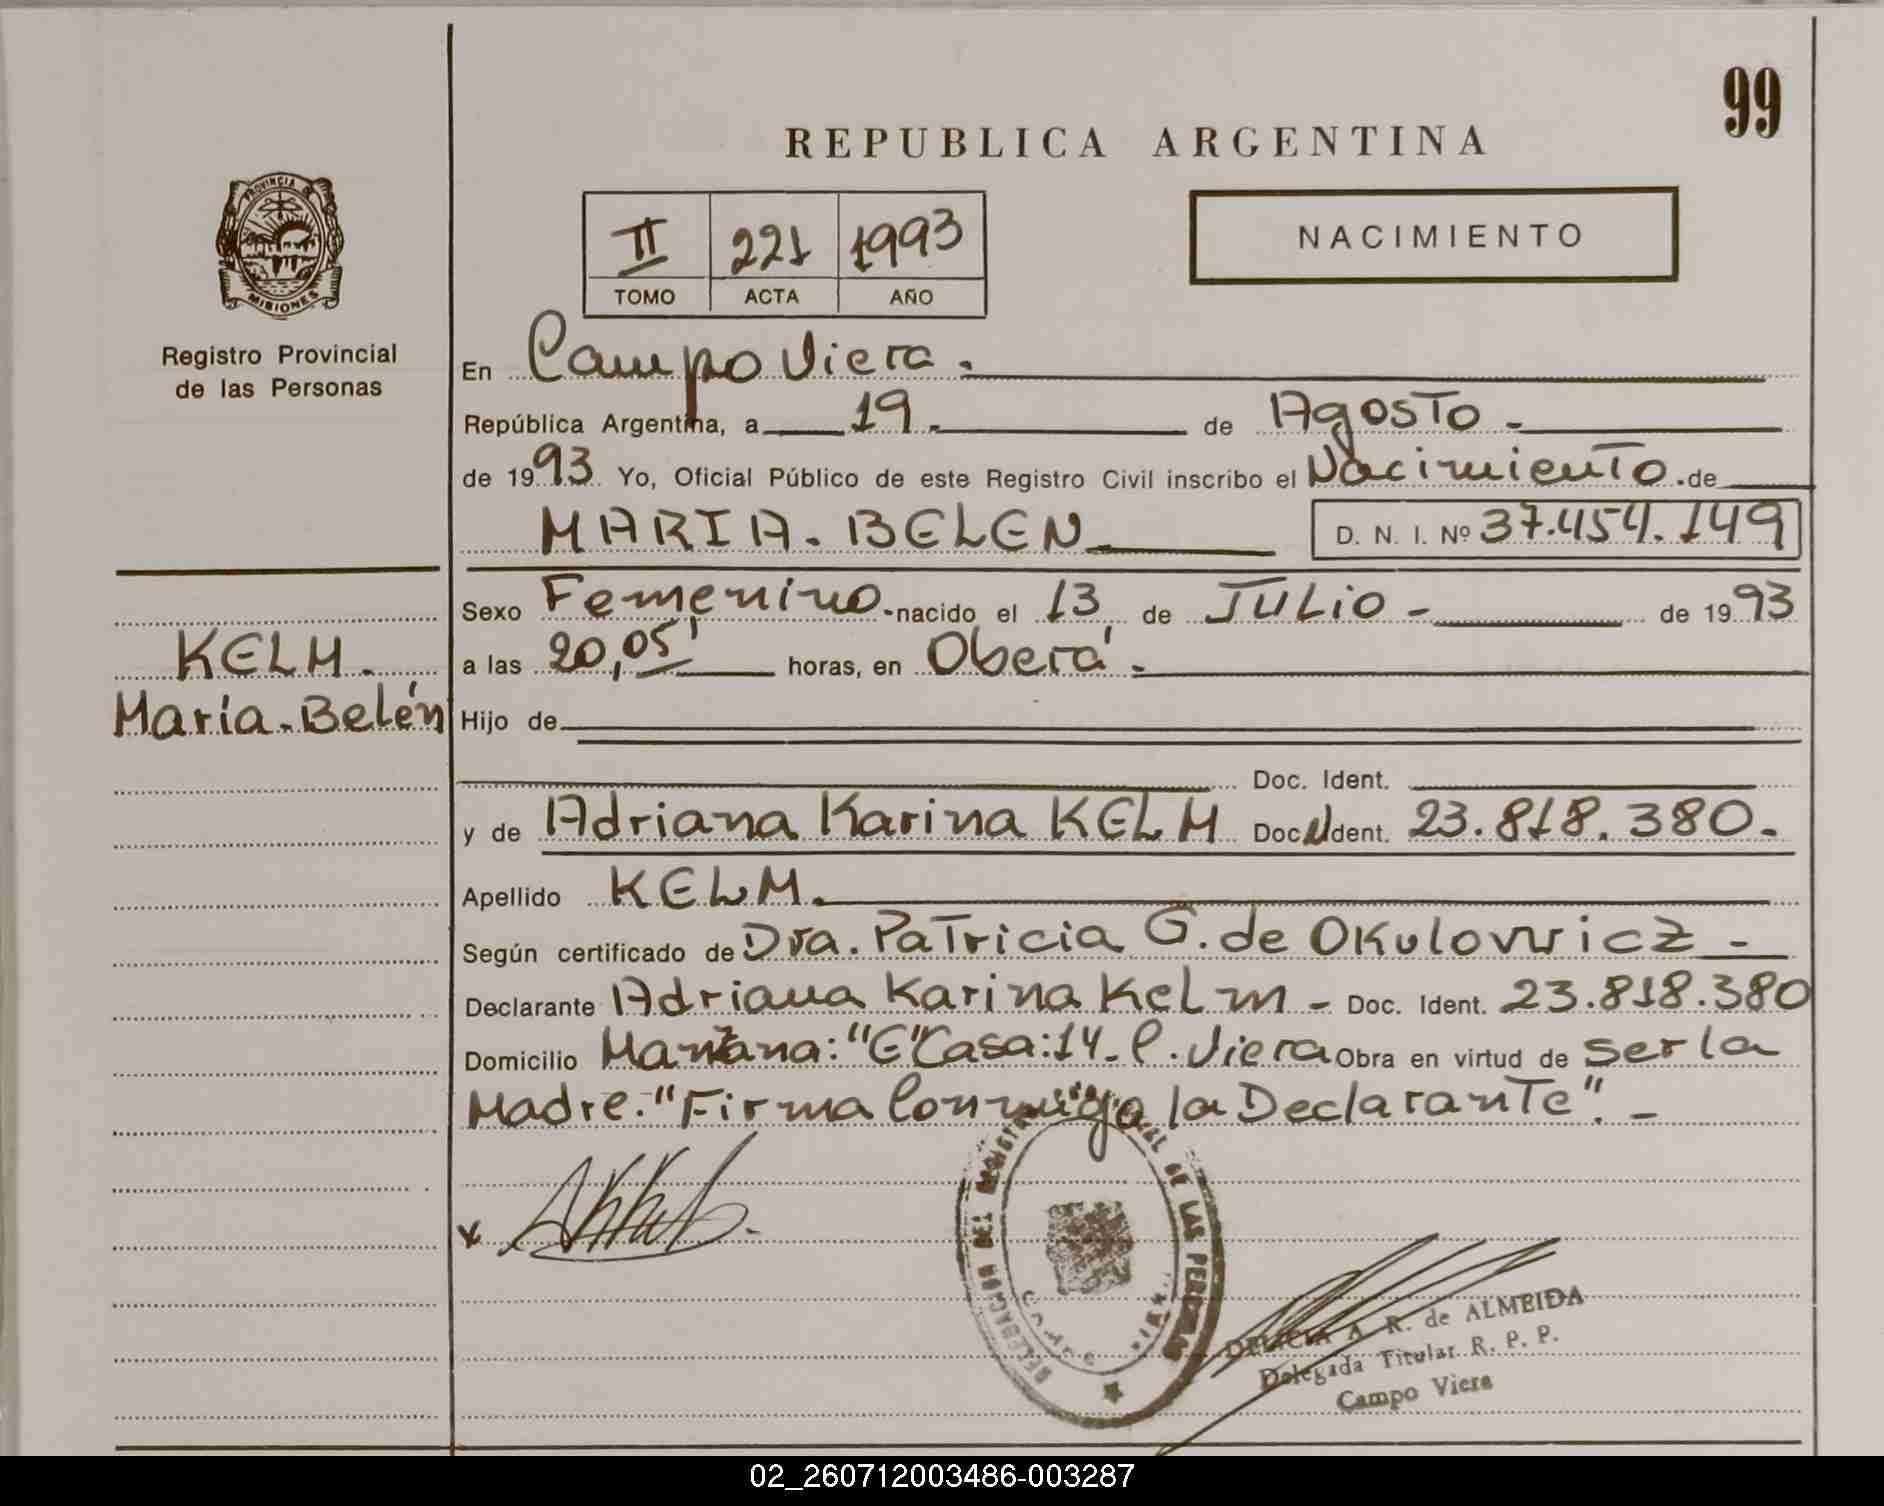 99
REPUBLICA ARGENTINA
PROVINCIA DE
MISIONES
Registro Provincial
de las Personas
II 221 1993
TOMO ACTA AÑO
NACIMIENTO
En Campo Viera.
República Argentina, a 19. de Agosto -
de 1993 Yo, Oficial Público de este Registro Civil inscribo el Nacimiento. de
MARIA. BELEN D. N. I. Nº 37.454.149
Sexo Femenino. nacido el 13 de JULIO - de 1993
KELM.
a las 20,05' horas, en Oberá.
María. Belén
Hijo de
Doc. Ident.
y de Adriana Karina KELM Doc. Ident. 23.818.380.
Apellido KELM.
Según certificado de Dra. Patricia G. de Okulovvicz -
Declarante Adriana Karina Kelm - Doc. Ident. 23.818.380
Domicilio Manzana: "E" Casa: 14. C. Viera Obra en virtud de ser la
Madre. "Firma Conmigo la Declarante". -
x
DELEGACION DEL REGISTRO DE LAS PERSONAS
DELICIA A. R. de ALMEIDA
Delegada Titular R. P. P.
Campo Viera
02_260712003486-003287